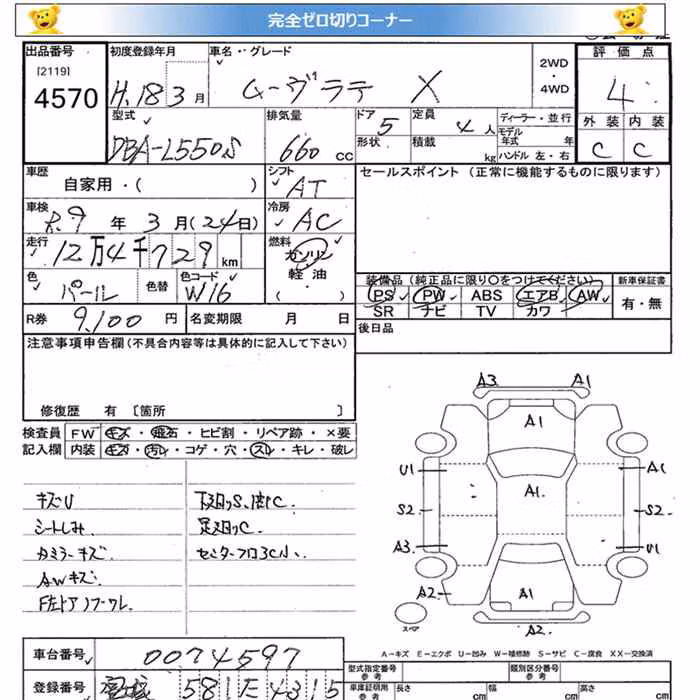 完全ゼロ切りコーナー
出品番号 初度登録年月 車名・グレード 評価点
[2119]
4570 H.18 3月 ムーヴラテ X 2WD・4WD 4
型式 排気量 ドア 定員 ディーラー・並行 外装 内装
DBA-L550S 660 CC 5 4人 モデル年式 年 C C
形状 積載 kg ハンドル 左・右
車歴 シフト セールスポイント (正常に機能するものに限ります)
自家用・( ) AT
車検 冷房
R.9年 3月(24日) AC
走行 燃料
12万4千729km ガソリン
軽油
( )
色 色替 色コード 装備品(純正品に限り○をつけてください) 新車保証書
パール W16 PS PW ABS エアB AW 有・無
SR ナビ TV カワ
R券 9,100円 名変期限 月 日 後日品
注意事項申告欄(不具合内容等は具体的に記入して下さい)
修復歴 有 〔箇所 〕
検査員 FW キズ・飛石・ヒビ割・リペア跡・×要
記入欄 内装 キズ・汚レ・コゲ・穴・スレ・キレ・破レ
A3 A1
A1
U1 A1
A1
S2 S2
A3 U1
A2 A1 A2
A2
スペア
キズU
シートしみ
カミラーキズ
AWキズ
下廻りS、直C
足廻りC
A-キズ E-エクボ U-凹み W-補修跡 S-サビ C-腐食 XX-交換済
車台番号 0074597
登録番号 581 4315
型式指定番号 参考 類別区分番号 参考
車庫証明用 参考 長さ cm 幅 cm 高さ cm